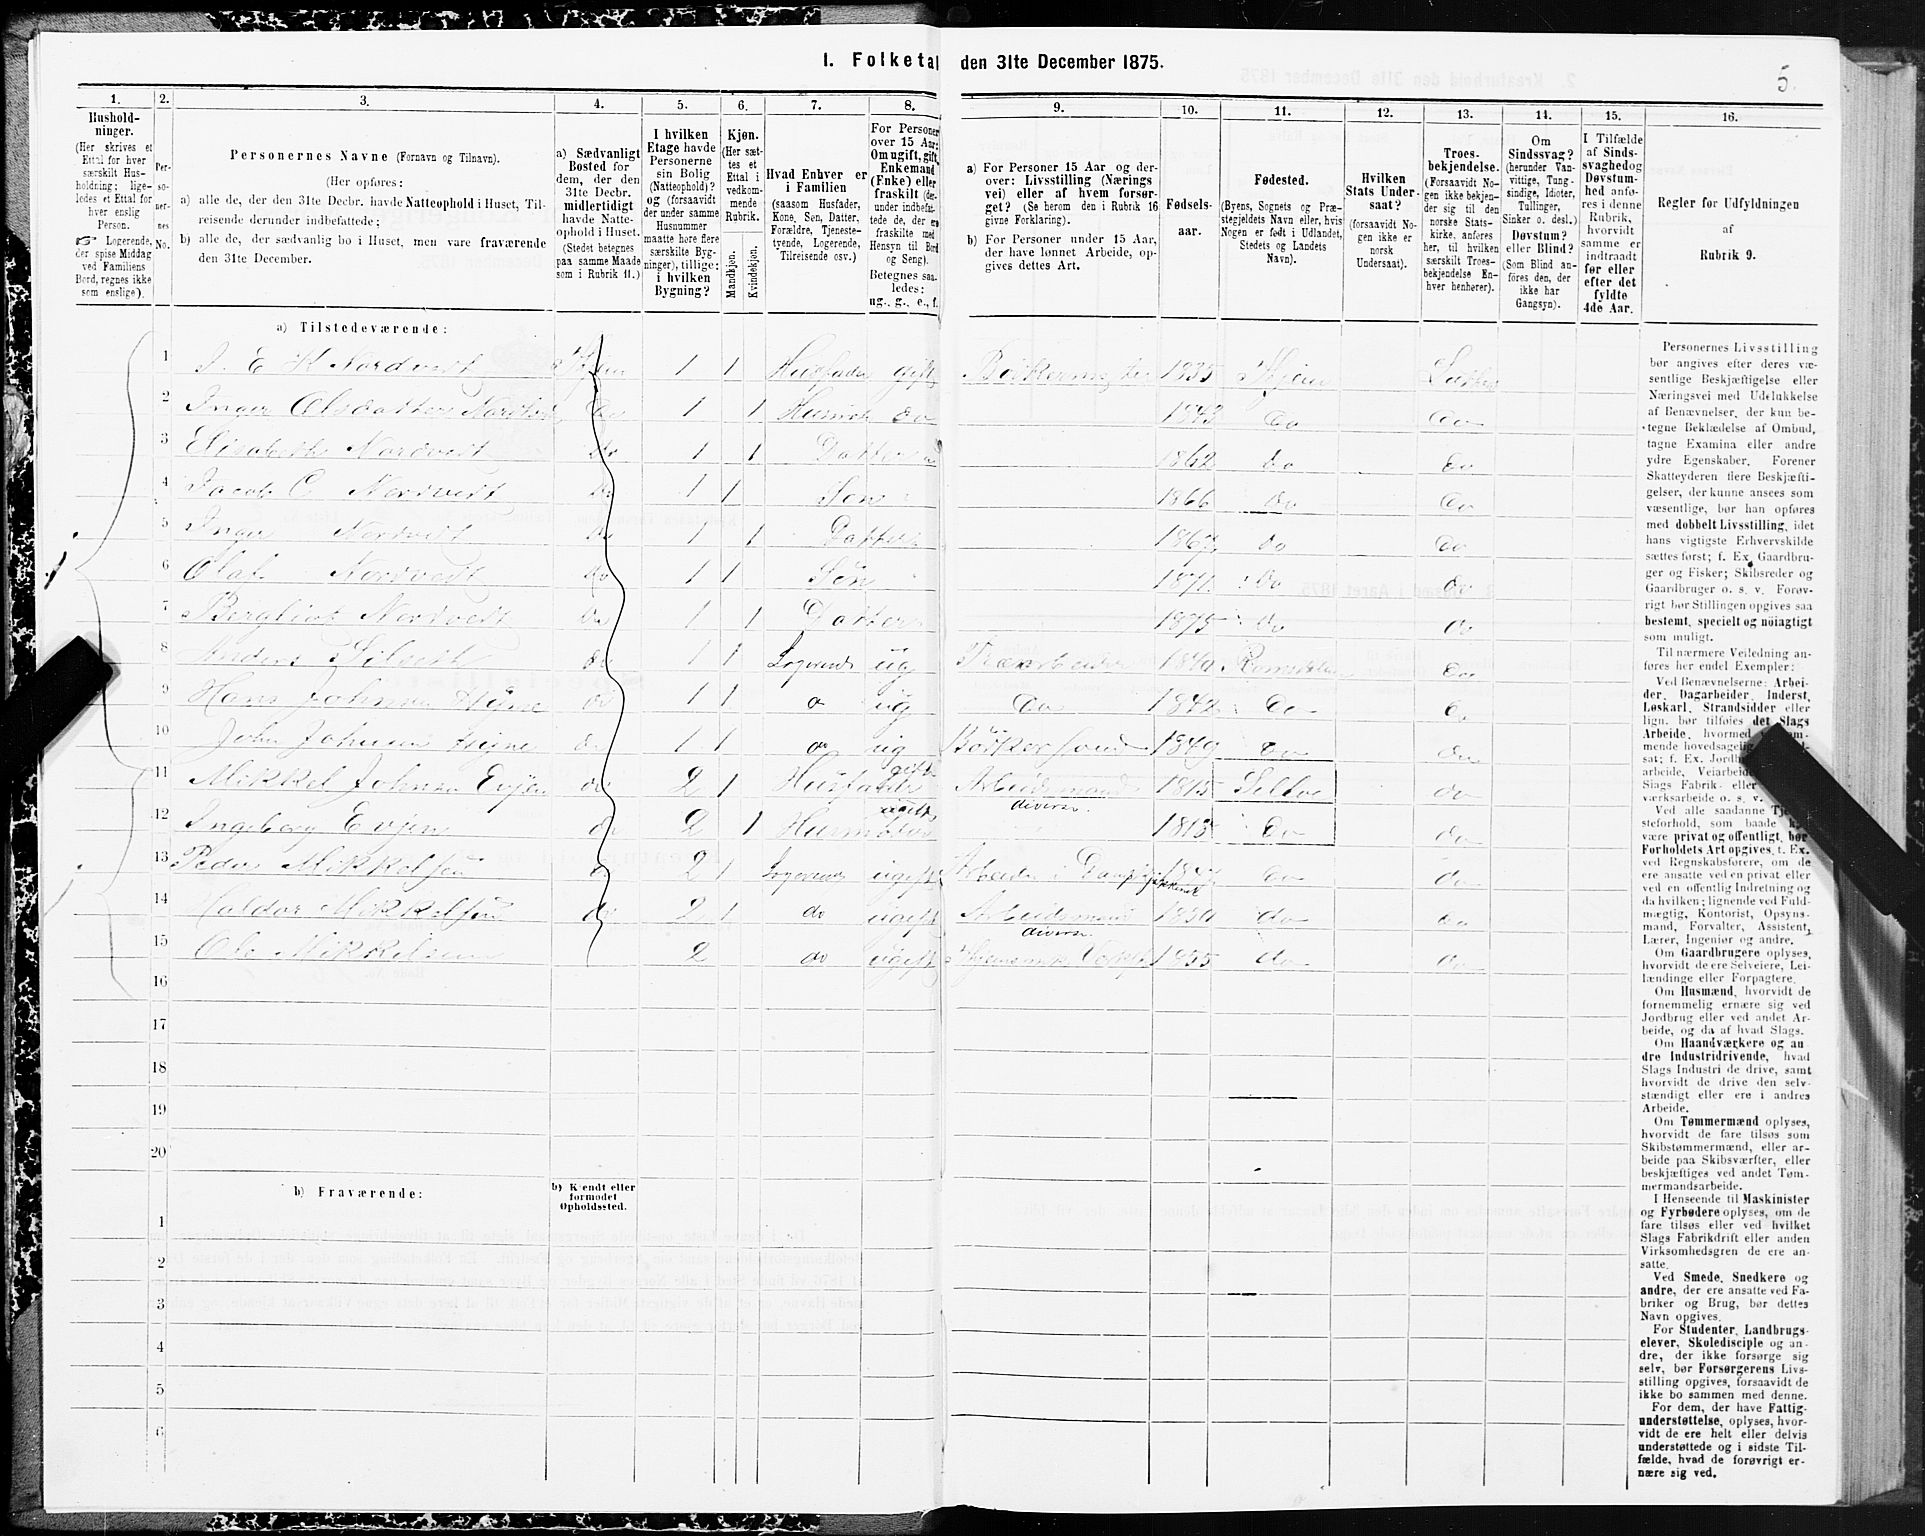 1. Folketal den 31te December 1875.
5.
1.
2.
3.
4.
5.
6.
7.
8.
9.
10.
11.
12.
13.
14.
15.
16.
Hushold-
ninger.
(Her skrives et
Ettal for hver
særskilt Hus-
holdning; lige-
ledes et Ettal for
hver enslig
Person.
☞ Logerende,
der spise Middag
ved Familiens
Bord, regnes ikke
som enslige).
Per-
so-
ner-
nes
No.
Personernes Navne (Fornavn og Tilnavn).
(Her opføres:
a) alle de, der den 31te Decbr. havde Natteophold i Huset, Til-
reisende derunder indbefattede;
b) alle de, der sædvanlig bo i Huset, men vare fraværende
den 31te December.
a) Sædvanligt
Bosted for
dem, der den
31te Decbr.
midlertidigt
havde Natte-
ophold i Huset.
(Stedet betegnes
paa samme Maade
som i Rubrik 11.)
I hvilken
Etage havde
Personerne
sin Bolig
(Natteophold)?
og (forsaavidt
der under samme
Husnummer
maatte høre flere
særskilte Byg-
ninger), tillige:
i hvilken
Bygning?
Kjøn.
(Her sæt-
tes et
Ettal i
vedkom-
mende
Rubrik.
Mandkjøn.
Kvindekjøn.
Hvad Enhver er
i Familien
(saasom Husfader,
Kone, Søn, Datter,
Forældre, Tjeneste-
tyende, Logerende,
Tilreisende osv.)
For Personer
over 15 Aar:
Om ugift, gift,
Enkemand
(Enke) eller
fraskilt (der-
under indbefat-
tede de, der ere
fraskilte med
Hensyn til Bord
og Seng).
Betegnes saa-
ledes:
ug., g., e., f.
a) For Personer 15 Aar og der-
over: Livsstilling (Nærings
vei) eller af hvem forsør-
get? (Se herom den i Rubrik 16
givne Forklaring).
b) For Personer under 15 Aar,
der have lønnet Arbeide, op-
gives dettes Art.
Fødsels-
aar.
Fødested.
(Byens, Sognets og Præ-
stegjeldets Navn eller, hvis
Nogen er født i Udlandet,
Stedets og Landets
Navn).
Hvilken
Stats Under-
saat?
(forsaavidt No-
gen ikke er
norsk
Undersaat).
Troes-
bekjendelse.
(Forsaavidt No-
gen ikke bekjen-
der sig til den
norske Stats-
kirke, anføres
her, til hvilken
særskilt Troes-
bekjendelse En-
hver henhører).
Om
Sindssvag?
(herunder Van-
vittige, Tung-
sindige, Idioter,
Tullinger,
Sinker o. desl.)
Døvstum?
eller Blind?
(Som Blind an-
føres den, der
ikke har
Gangsyn).
I Tilfælde
af Sinds-
svaghed og
Døvstum-
hed anfø-
res i denne
Rubrik,
hvorvidt
samme er
indtraadt
før eller
efter det
fyldte
4de Aar.
Regler for Udfyldningen
af
Rubrik 9.
a) Tilstedeværende:
1 J. E. H. Nordvedt 1 1 Husfader gift Bödkermester 1835
2 Inger Olsdatter 1 1 Husmoder do 1843 do do
3 Elisabeth Nordvedt do 1 1 Datter 1862 do do
4 Jacob O Nordvedt do 1 1 Søn 1866 do do
5 Inger Nordvedt do 1 1 Datter do do
6 Olaf Nordvedt do 1 1 Søn 1871 do do
7 Bergliot Nordvedt do 1 1 Datter 1875 do do
8 Anders do 1 1 Logerende ug 1840 Romsdalen do
9 Hans Johnsen do 1 1 do ug do 1842 do do
10 John Johnsen do 1 1 do ug Bödkersvend 1849 do do
11 Mikkel Johnsen Evjen do 2 1 Husfader gift Arbeidsmand diverse 1815 Selbo do
12 Ingeborg Evjen do 2 1 Husmoder 1815 do do
13 Peder Mikkelsen do 2 1 Logerende ugift Arbeider i do do
14 Haldor Mikkelsen do 2 1 do ugift Arbeidsmand diverse 1850 do do
15 Ole Mikkelsen 2 do ugift 1855 do do
16
17
18
19
20
b) Fraværende:
b) Kjendt eller
formodet
Opholdssted.
1
2
3
4
5
6
Personernes Livsstilling
bør angives efter deres væ-
sentlige Beskjæftigelse eller
Næringsvei med Udelukkelse
af Benævnelser, der kun be-
tegne Beklædelse af Ombud,
tagne Examina eller andre
ydre Egenskaber. Forener
Skatteyderen flere Beskjæfti-
gelser, der kunne ansees som
væsentlige, bør han opføres
med dobbelt Livsstilling, idet
hans vigtigste Erhvervskilde
sættes først; f. Ex. Gaardbru-
ger og Fisker; Skibsreder og
Gaardbruger o. s. v. Forøv-
rigt bør Stillingen opgives saa
bestemt, specielt og nøiagtigt
som muligt.
Til nærmere Veiledning an-
føres her endel Exempler:
Ved Benævnelserne: Arbei-
der, Dagarbeider, Inderst,
Løskarl, Strandsidder eller
lign. bør tilføies det Slags
Arbeide, hvormed
mende hovedsagelig
sat; f. Ex.
arbeide, Veiarbeide
Slags Fabrik- eller
værksarbeide o. s. v.
Ved alle saadanne
steforhold, som baade
være privat og offentligt, bør
Forholdets Art opgives, t. Ex.
ved Regnskabsførere, om de
ere ansatte ved en privat eller
ved en offentlig Indretning og
da hvilken; lignende ved Fuld-
mægtig, Kontorist, Opsyns-
mand, Forvalter, Assistent,
Lærer, Ingeniør og andre.
Om Gaardbrugere oplyses,
hvorvidt de ere Selveiere, Lei-
lændinge eller Forpagtere.
Om Husmænd, hvorvidt de
fornemmelig ernære sig ved
Jordbrug eller ved andet Ar-
beide, og da af hvad Slags.
Om Haandværkere og an
dre Industridrivende, hvad
Slags Industri de drive, samt
hvorvidt de drive den selv-
stændigt eller ere i andres
Arbeide.
Om Tømmermænd oplyses,
hvorvidt de fare tilsøs som
Skibstømmermænd, eller ar-
beide paa Skibsværfter, eller
beskjæftiges ved andet Tøm-
mermandsarbeide.
I Henseende til Maskinister
og Fyrbødere oplyses, om de
fare tilsøs eller ved hvilket
Slags Fabrikdrift eller anden
Virksomhedsgren de ere an-
satte.
Ved Smede, Snedkere og
andre, der ere ansatte ved Fa-
briker og Brug, bør dettes
Navn opgives.
For Studenter, Landbrugs-
elever, Skoledisciple og an-
dre, der ikke forsørge sig
selv, bør Forsørgerens Livs-
stilling opgives, forsaavidt de
ikke bo sammen med denne.
For dem, der have Fattig-
understøttelse, oplyses, hvor-
vidt de ere helt eller delvis
understøttede og i sidste Til-
fælde, hvad de forøvrigt er-
nære sig ved.